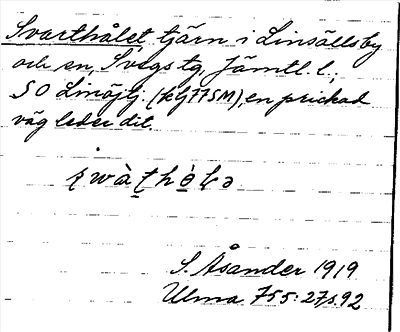 Svarthålet, tjärn i Linsällsby
och sn, Svegs tg, Jämtl. l.;
SO Linsjlj. (klj 77 SM), en prickad
väg leder dit.
S. Åsander 1919
Ulma 755: 27 s. 92